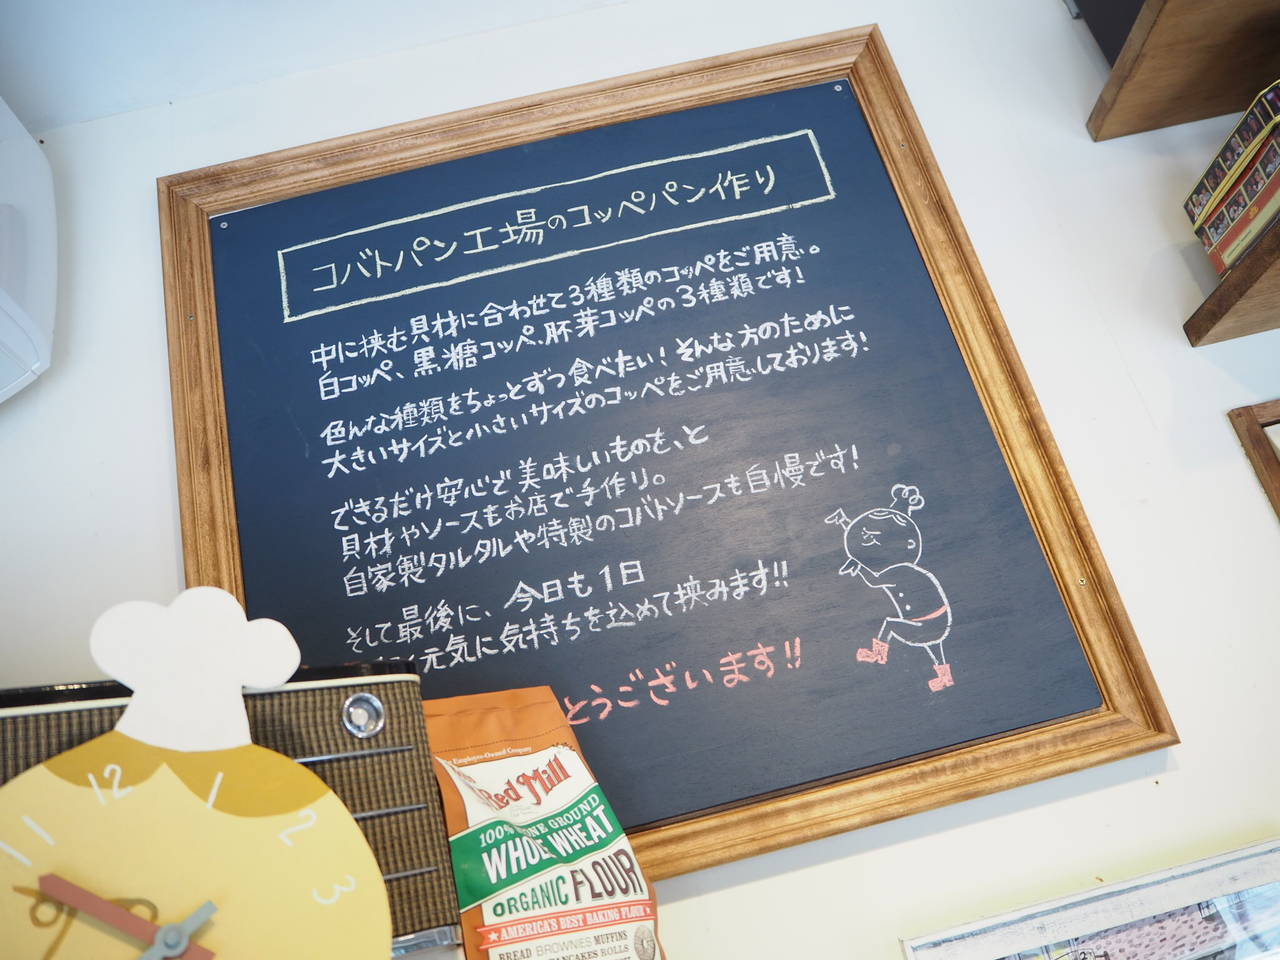 コバトパン工場のコッペパン作り
中に挟む具材に合わせて3種類のコッペをご用意。
白コッペ、黒糖コッペ、胚芽コッペの3種類です!
色んな種類をちょっとずつ食べたい!そんな方のために
大きいサイズと小さいサイズのコッペをご用意しております!
できるだけ安心で美味しいものを、と
具材やソースもお店で手作り。
自家製タルタルや特製のコバトソースも自慢です!
そして最後に、今日も1日
元気に気持ちを込めて挟みます!!
とうございます!!
12
1
2
3
11
Employee-Owned Company
Red Mill
100% STONE GROUND
WHOLE WHEAT
ORGANIC FLOUR
AMERICA'S BEST BAKING FLOUR
BREAD BROWNIES MUFFINS
PANCAKES ROLLS